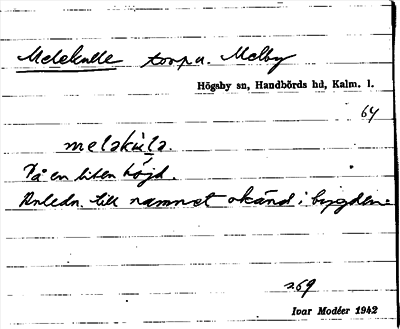 Melekulle torp u. Melby
Högsby sn, Handbörds hd, Kalm. l.
64
meləkùla.
På en liten höjd.
Anledn. till namnet okänd i bygden.
269
Ivar Modéer 1942